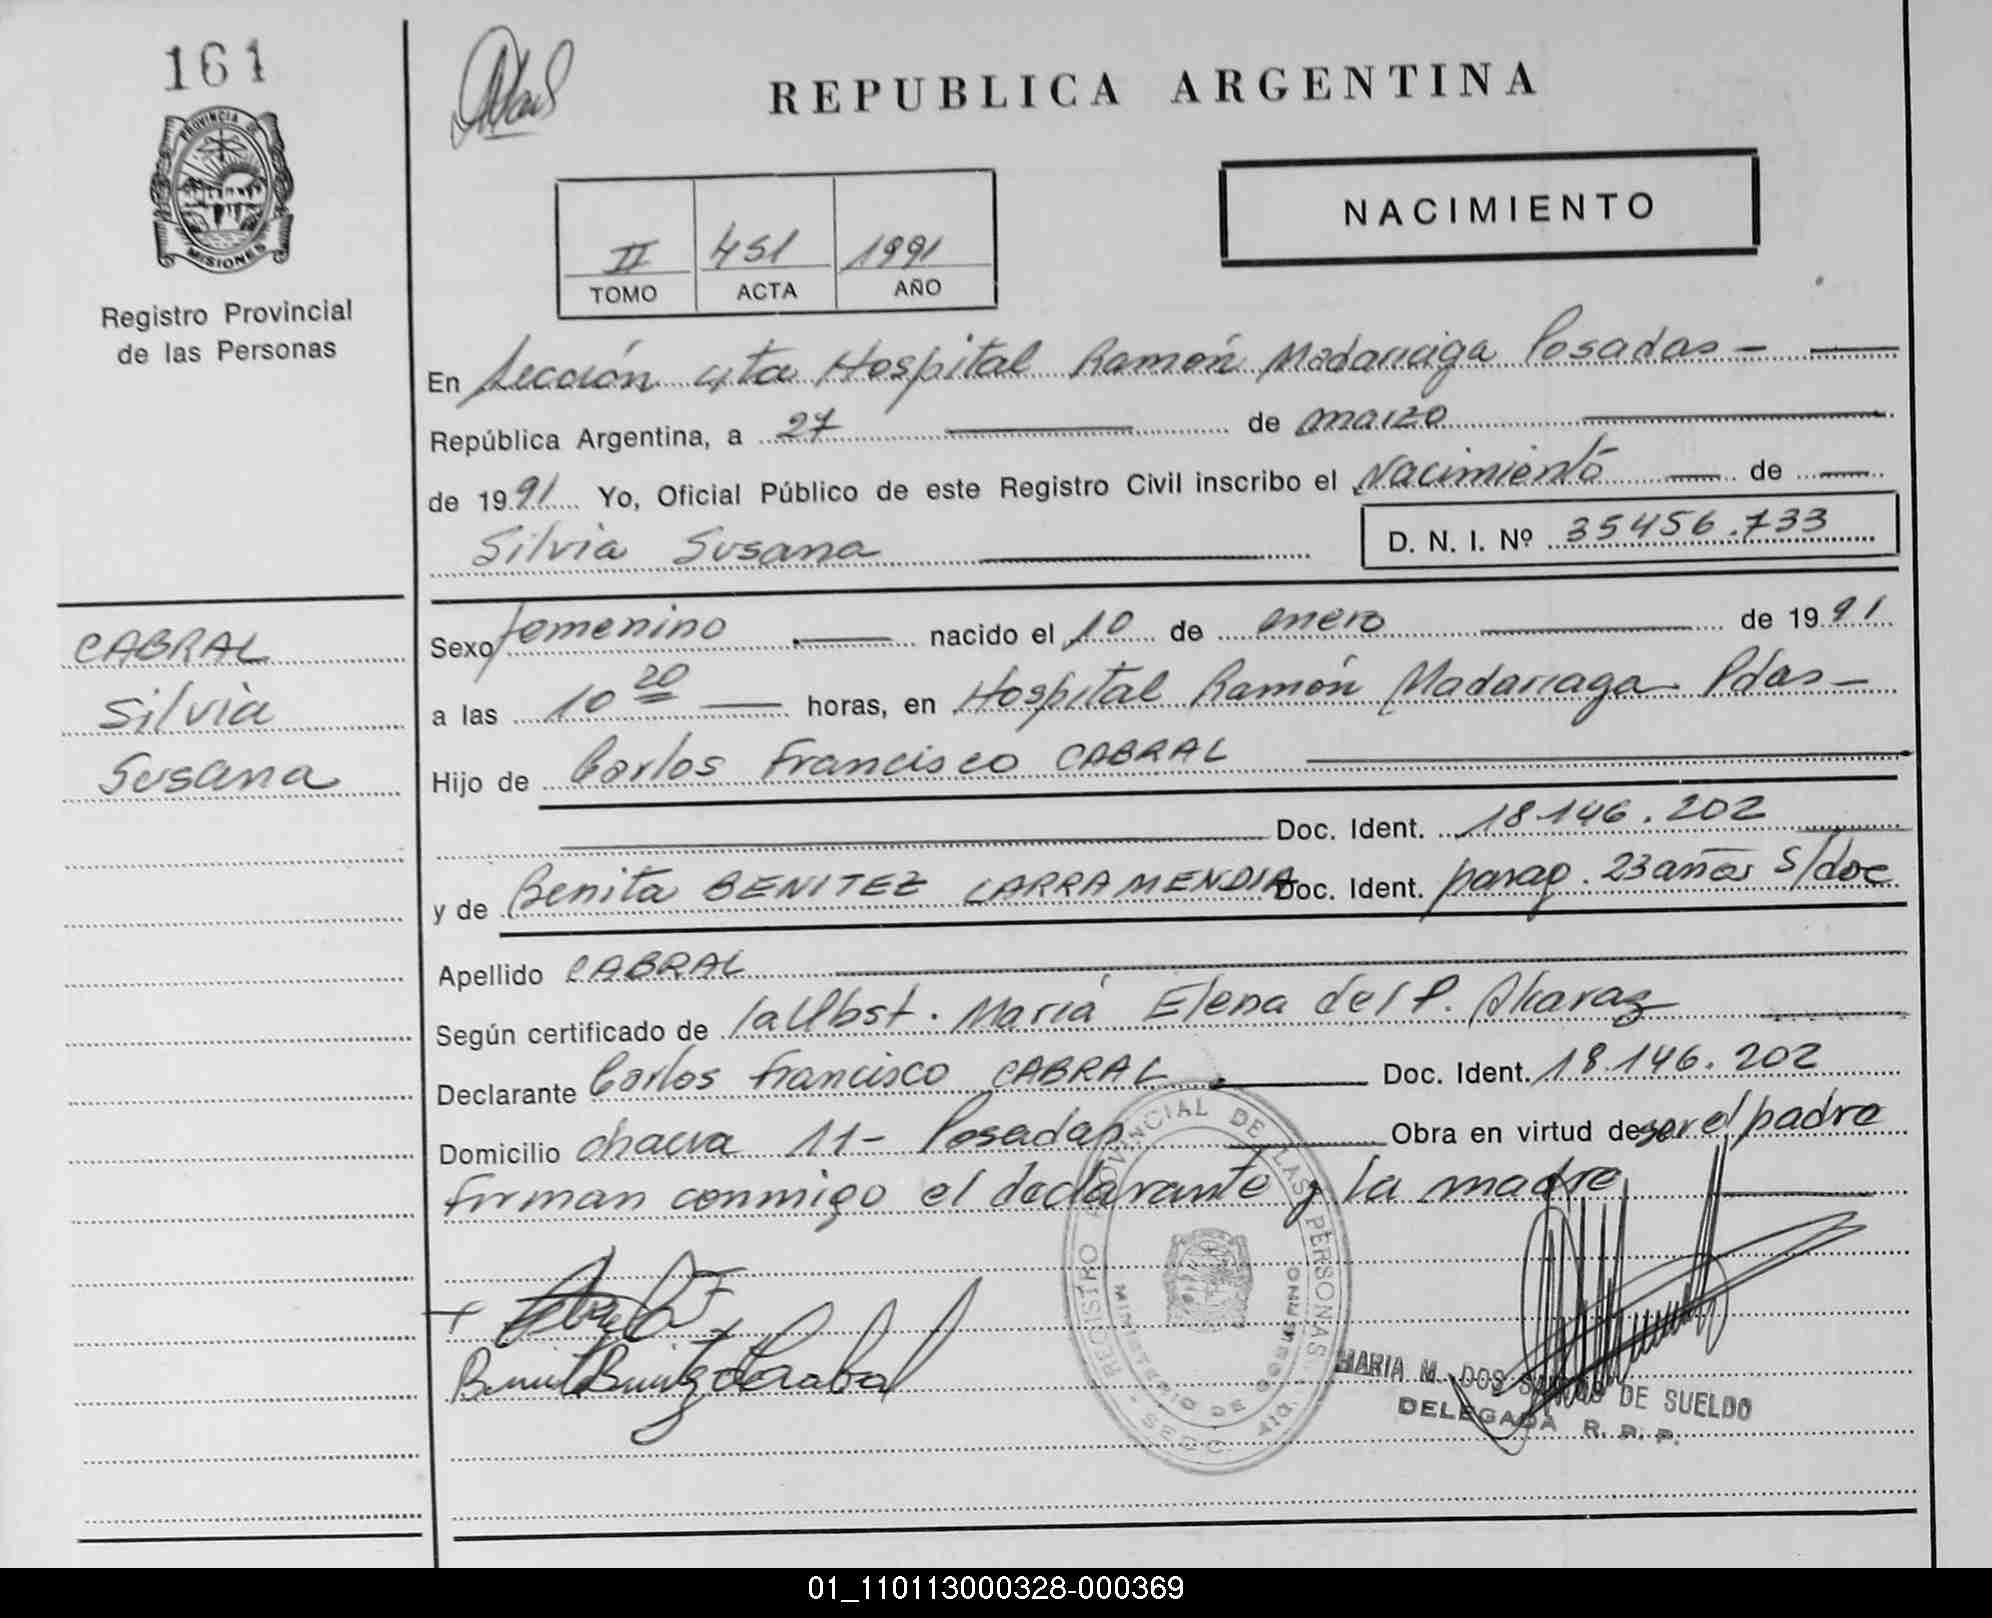 161
PROVINCIA DE
MISIONES
Registro Provincial
de las Personas
CABRAL
Silvia
Susana
REPUBLICA ARGENTINA
NACIMIENTO
II 451 1991
TOMO ACTA AÑO
En Sección 4ta Hospital Ramón Madariaga Posadas —
República Argentina, a 27 de marzo
de 1991 Yo, Oficial Público de este Registro Civil inscribo el Nacimiento de
Silvia Susana D. N. I. Nº 35456.733
Sexo femenino nacido el 10 de enero de 1991
a las 10 20 horas, en Hospital Ramón Madariaga Pdas —
Hijo de Carlos Francisco CABRAL
Doc. Ident. 18.146.202
y de Benita BENITEZ LARRAMENDIA Doc. Ident. parag. 23 años s/doc
Apellido CABRAL
Según certificado de la Obst. María Elena del P. Alvaraz
Declarante Carlos Francisco CABRAL Doc. Ident. 18.146.202
Domicilio chacra 11 - Posadas Obra en virtud de ser el padre
Firman conmigo el declarante y la madre
REGISTRO PROVINCIAL DE LAS PERSONAS
MINISTERIO DE GOBIERNO
MARIA M. DOS SANTOS DE SUELDO
DELEGADA R. P. P.
01_110113000328-000369